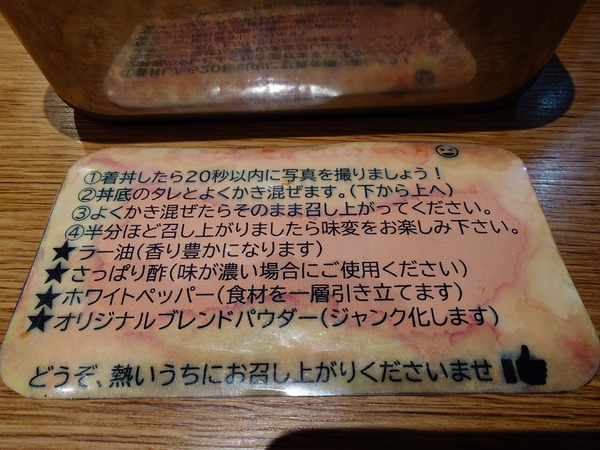 ①着丼したら20秒以内に写真を撮りましょう！
②丼底のタレとよくかき混ぜます。(下から上へ)
③よくかき混ぜたらそのまま召し上がってください。
④半分ほど召し上がりましたら味変をお楽しみ下さい。
★ラー油(香り豊かになります)
★さっぱり酢(味が濃い場合にご使用ください)
★ホワイトペッパー(食材を一層引き立てます)
★オリジナルブレンドパウダー(ジャンク化します)
どうぞ、熱いうちにお召し上がりくださいませ